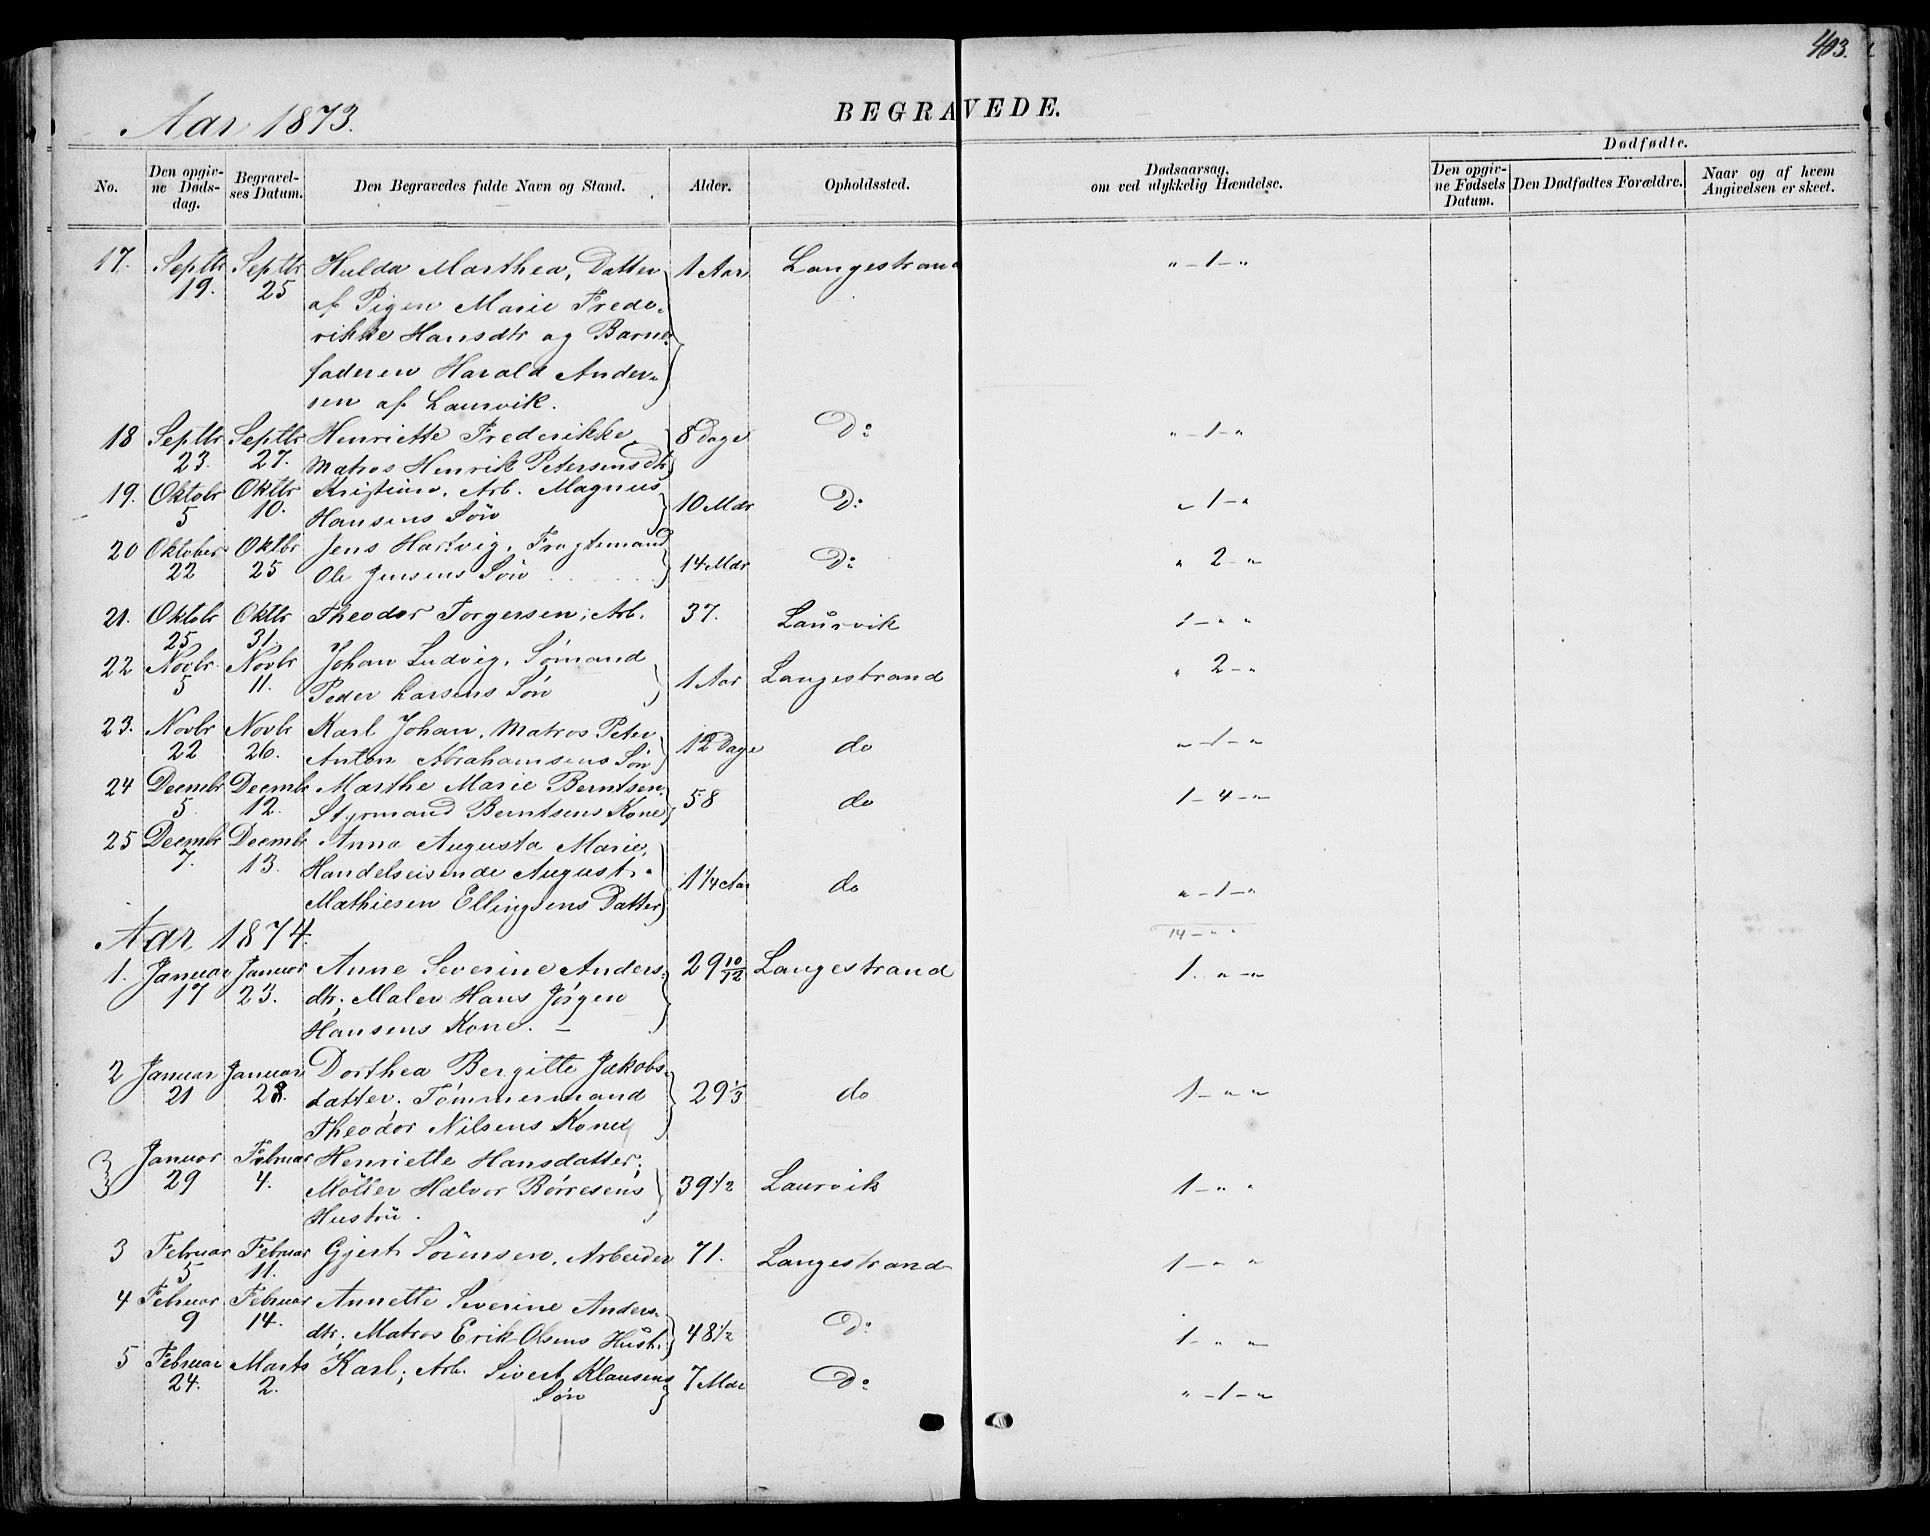 403.
Aar 1873.
BEGRAVEDE.
Dødfødte.
No.
Den opgivne Dødsdag.
Begravelses Datum.
Den Begravedes fulde Navn og Stand.
Alder.
Opholdssted.
Dødsaarsag,
om ved ulykkelig Hændelse.
Den opgivne Fødsels Datum.
Den Dødfødtes Forældre.
Naar og af hvem Angivelsen er skeet.
17. Septbr Septbr Hulda Marthea, Datter 1 Aar Langestrand " - 1 - "
19. 25 af Pigen Marie Frede-
rikke Hansdtr og Barne-
faderen Harald Ander-
sen af Laurvik.
18 Septbr Septbr Henriette Frederikke, 8 Dage Do " - 1 - "
23. 27. Matros Henrik Petersens dtr
19. Oktobr Oktbr Kristian, Arb. Magnus 10 Mdr Do " 1 - "
5 10. Hansens Søn
20 Oktober Oktbr Jens Hartvig, Fragtemand 14 Mdr Do " 2 - "
22 25 Ole Jensens Søn
21. Oktobr Oktbr Theodor Torgersen, Arb. 37. Laurvik 1 - " "
25 31.
22 Novbr. Novbr Johan Ludvig, Sømand 1 Aar Langestrand " 2 - "
5 11. Peder Larsens Søn
23. Novbr Novbr Karl Johan, Matros Peter 12 Dage do " - 1 - "
22 26. Anton Abrahamsens Søn
24 Decmbr Decmbr Marthe Marie Berntsen, 58 do 1 - 4 - "
5 12. Styrmand Berntsens Kone
25 Decmbr Decmbr Anna Augusta Marie, 1 1/4 Aar do " - 1 - "
7. 13. Handelseiende August
Mathiesen Ellingsens Datter
14 - " "
Aar 1874.
1. Januar Januar Anne Severine Anders- 29 10/12 Langestrand 1. " - "
17 23. dtr, Maler Hans Jørgen
Hansens Kone. -
2 Januar Januar Dorthea Bergitte Jakobs- 29 1/3 do 1 - " "
21 28. datter, Tømmermand
Theodor Nilsens Kone
Januar Februar Henriette Hansdatter, 39 1/2 Laurvik 1 - " "
29 4. Møller Halvor Børresens
Hustru.
3 Februar Februar Gjert Sørensen, Arbeider 71. Langestrand 1 - " "
5 11.
4 Februar Februar Annette Severine Anders- 48 1/2 Do 1 - " "
9 14. dtr, Matros Erik Olsens Hustr.
5 Februar Marts Karl, Arb. Sivert Klausens 7 Mdr Do " - 1 - "
24. 2. Søn